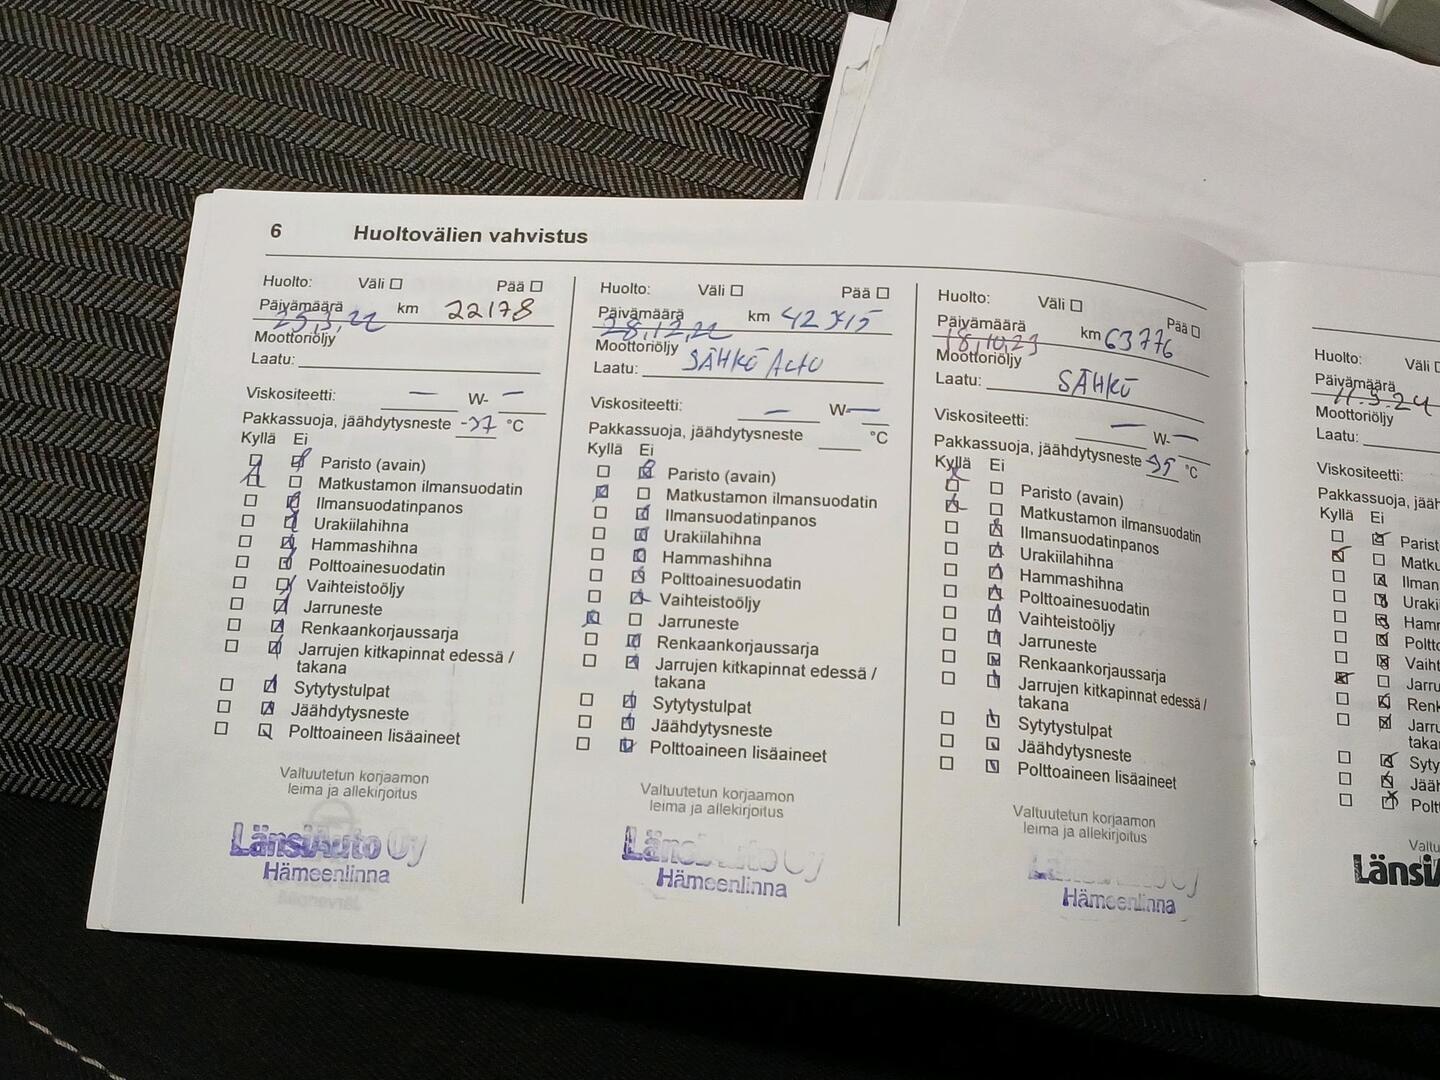 6 Huoltovälien vahvistus
Huolto: Väli Pää
Päivämäärä km 22178
25,3,22
Moottoriöljy
Laatu:
Viskositeetti: — W- —
Pakkassuoja, jäähdytysneste -37 °C
Kyllä Ei
Paristo (avain)
Matkustamon ilmansuodatin
Ilmansuodatinpanos
Urakiilahihna
Hammashihna
Polttoainesuodatin
Vaihteistoöljy
Jarruneste
Renkaankorjaussarja
Jarrujen kitkapinnat edessä /
takana
Sytytystulpat
Jäähdytysneste
Polttoaineen lisäaineet
Valtuutetun korjaamon
leima ja allekirjoitus
LänsiAuto Oy
Hämeenlinna
Huolto: Väli Pää
Päivämäärä km
28,12,22
Moottoriöljy
Laatu: SÄHKÖ AUTO
Viskositeetti: — W- —
Pakkassuoja, jäähdytysneste °C
Kyllä Ei
Paristo (avain)
Matkustamon ilmansuodatin
Ilmansuodatinpanos
Urakiilahihna
Hammashihna
Polttoainesuodatin
Vaihteistoöljy
Jarruneste
Renkaankorjaussarja
Jarrujen kitkapinnat edessä /
takana
Sytytystulpat
Jäähdytysneste
Polttoaineen lisäaineet
Valtuutetun korjaamon
leima ja allekirjoitus
LänsiAuto Oy
Hämeenlinna
Huolto: Väli Pää
Päivämäärä km 63776
18,10,23
Moottoriöljy
Laatu: SÄHKÖ
Viskositeetti: — W- —
Pakkassuoja, jäähdytysneste °C
Kyllä Ei
Paristo (avain)
Matkustamon ilmansuodatin
Ilmansuodatinpanos
Urakiilahihna
Hammashihna
Polttoainesuodatin
Vaihteistoöljy
Jarruneste
Renkaankorjaussarja
Jarrujen kitkapinnat edessä /
takana
Sytytystulpat
Jäähdytysneste
Polttoaineen lisäaineet
Valtuutetun korjaamon
leima ja allekirjoitus
Hämeenlinna
Huolto: Väli
Päivämäärä
11.3.24
Moottoriöljy
Laatu:
Viskositeetti:
Pakkassuoja, jääh
Kyllä Ei
Parist
Matku
Ilman
Uraki
Hamm
Poltto
Vaiht
Jarru
Renk
Jarru
taka
Syty
Jääh
Polt
Valtu
LänsiA